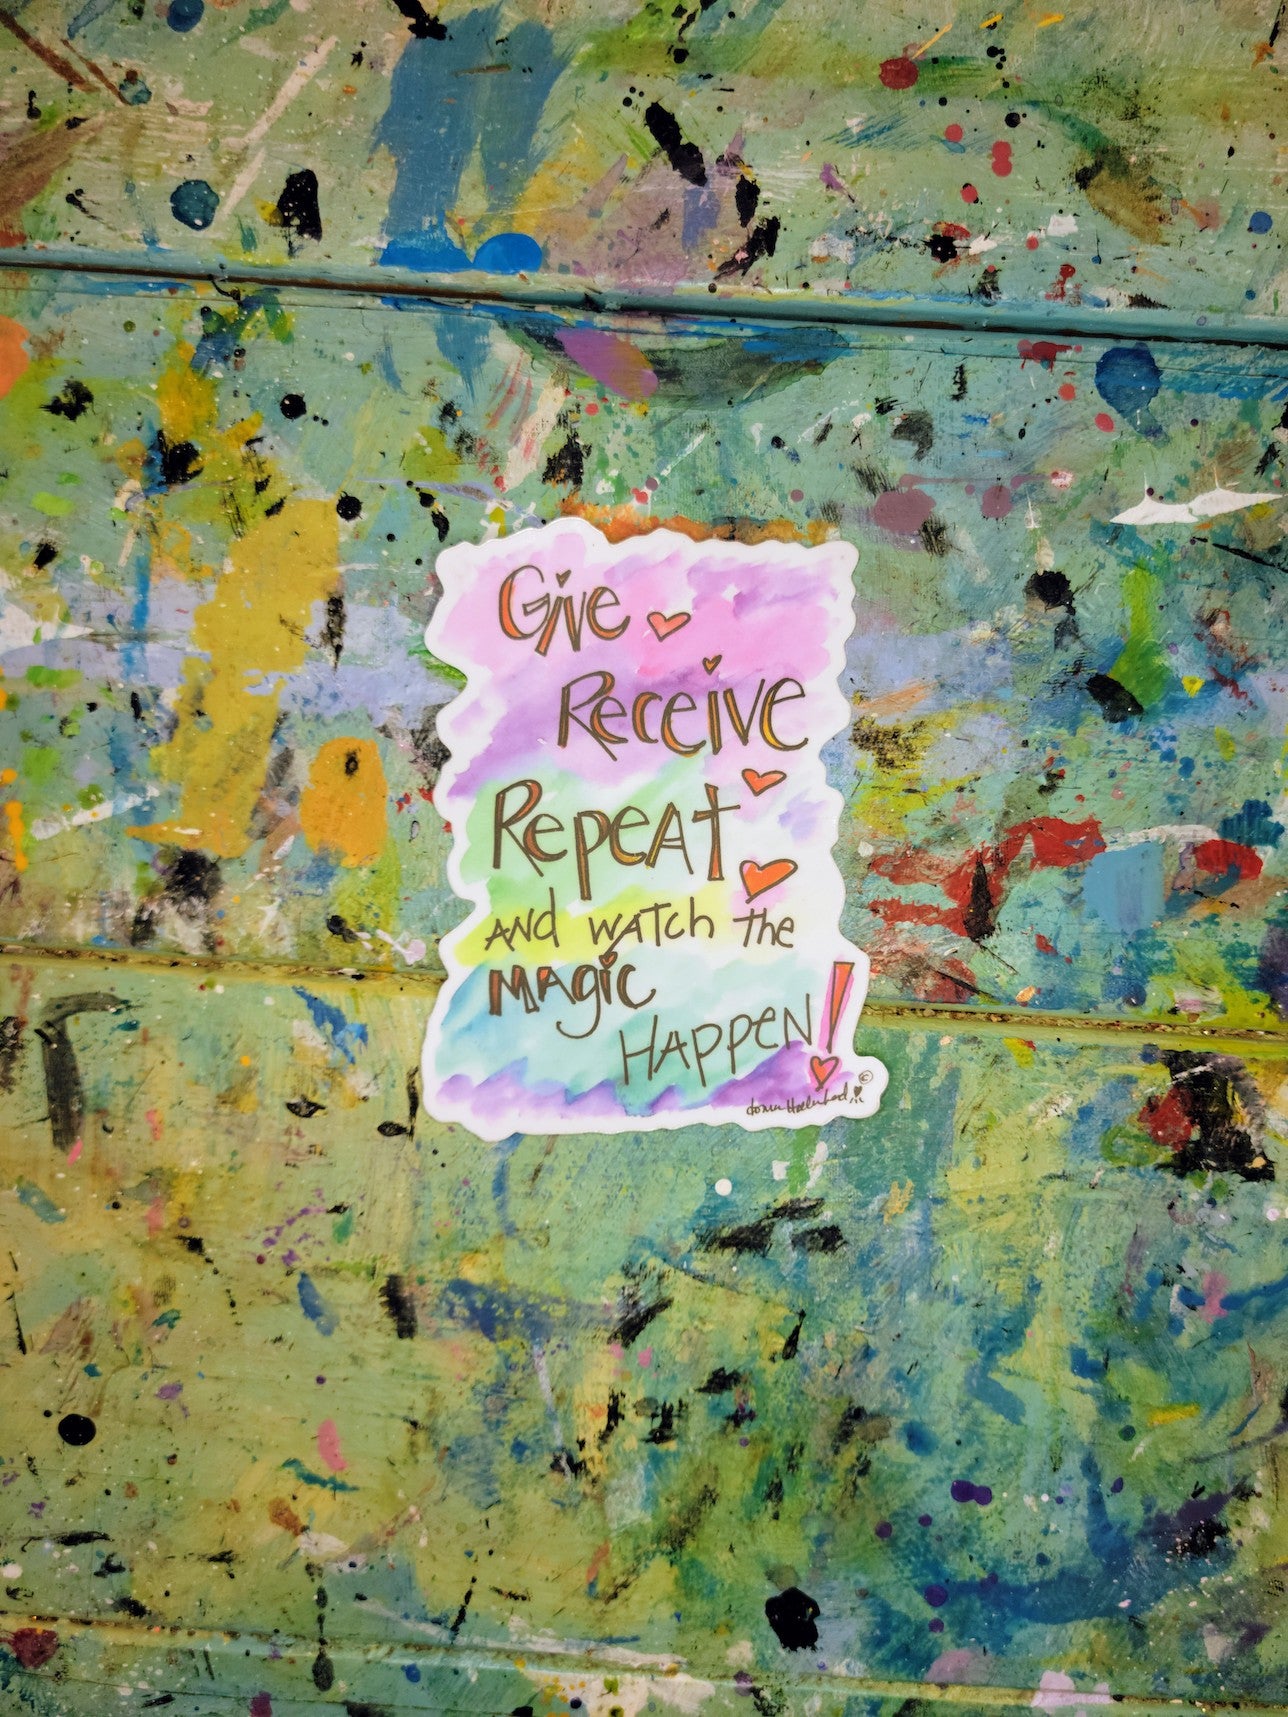 Give
Receive
Repeat
and watch the
magic
Happen!
©